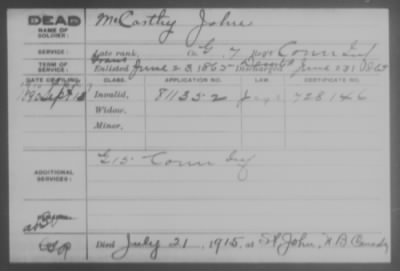 DEAD
NAME OF SOLDIER:
McCarthy John
SERVICE:
Late rank, in G 7 Reg't Conn Inf
TERM OF SERVICE:
Enlisted June 23, 1865 Discharged June 23, 1865
DATE OF FILING. CLASS. APPLICATION NO. LAW. CERTIFICATE NO.
1890 Sept Invalid, 811352 728146
Widow,
Minor,
ADDITIONAL SERVICES:
G 15 Conn Inf
Died July 21, 1915, at St John, N B Canada